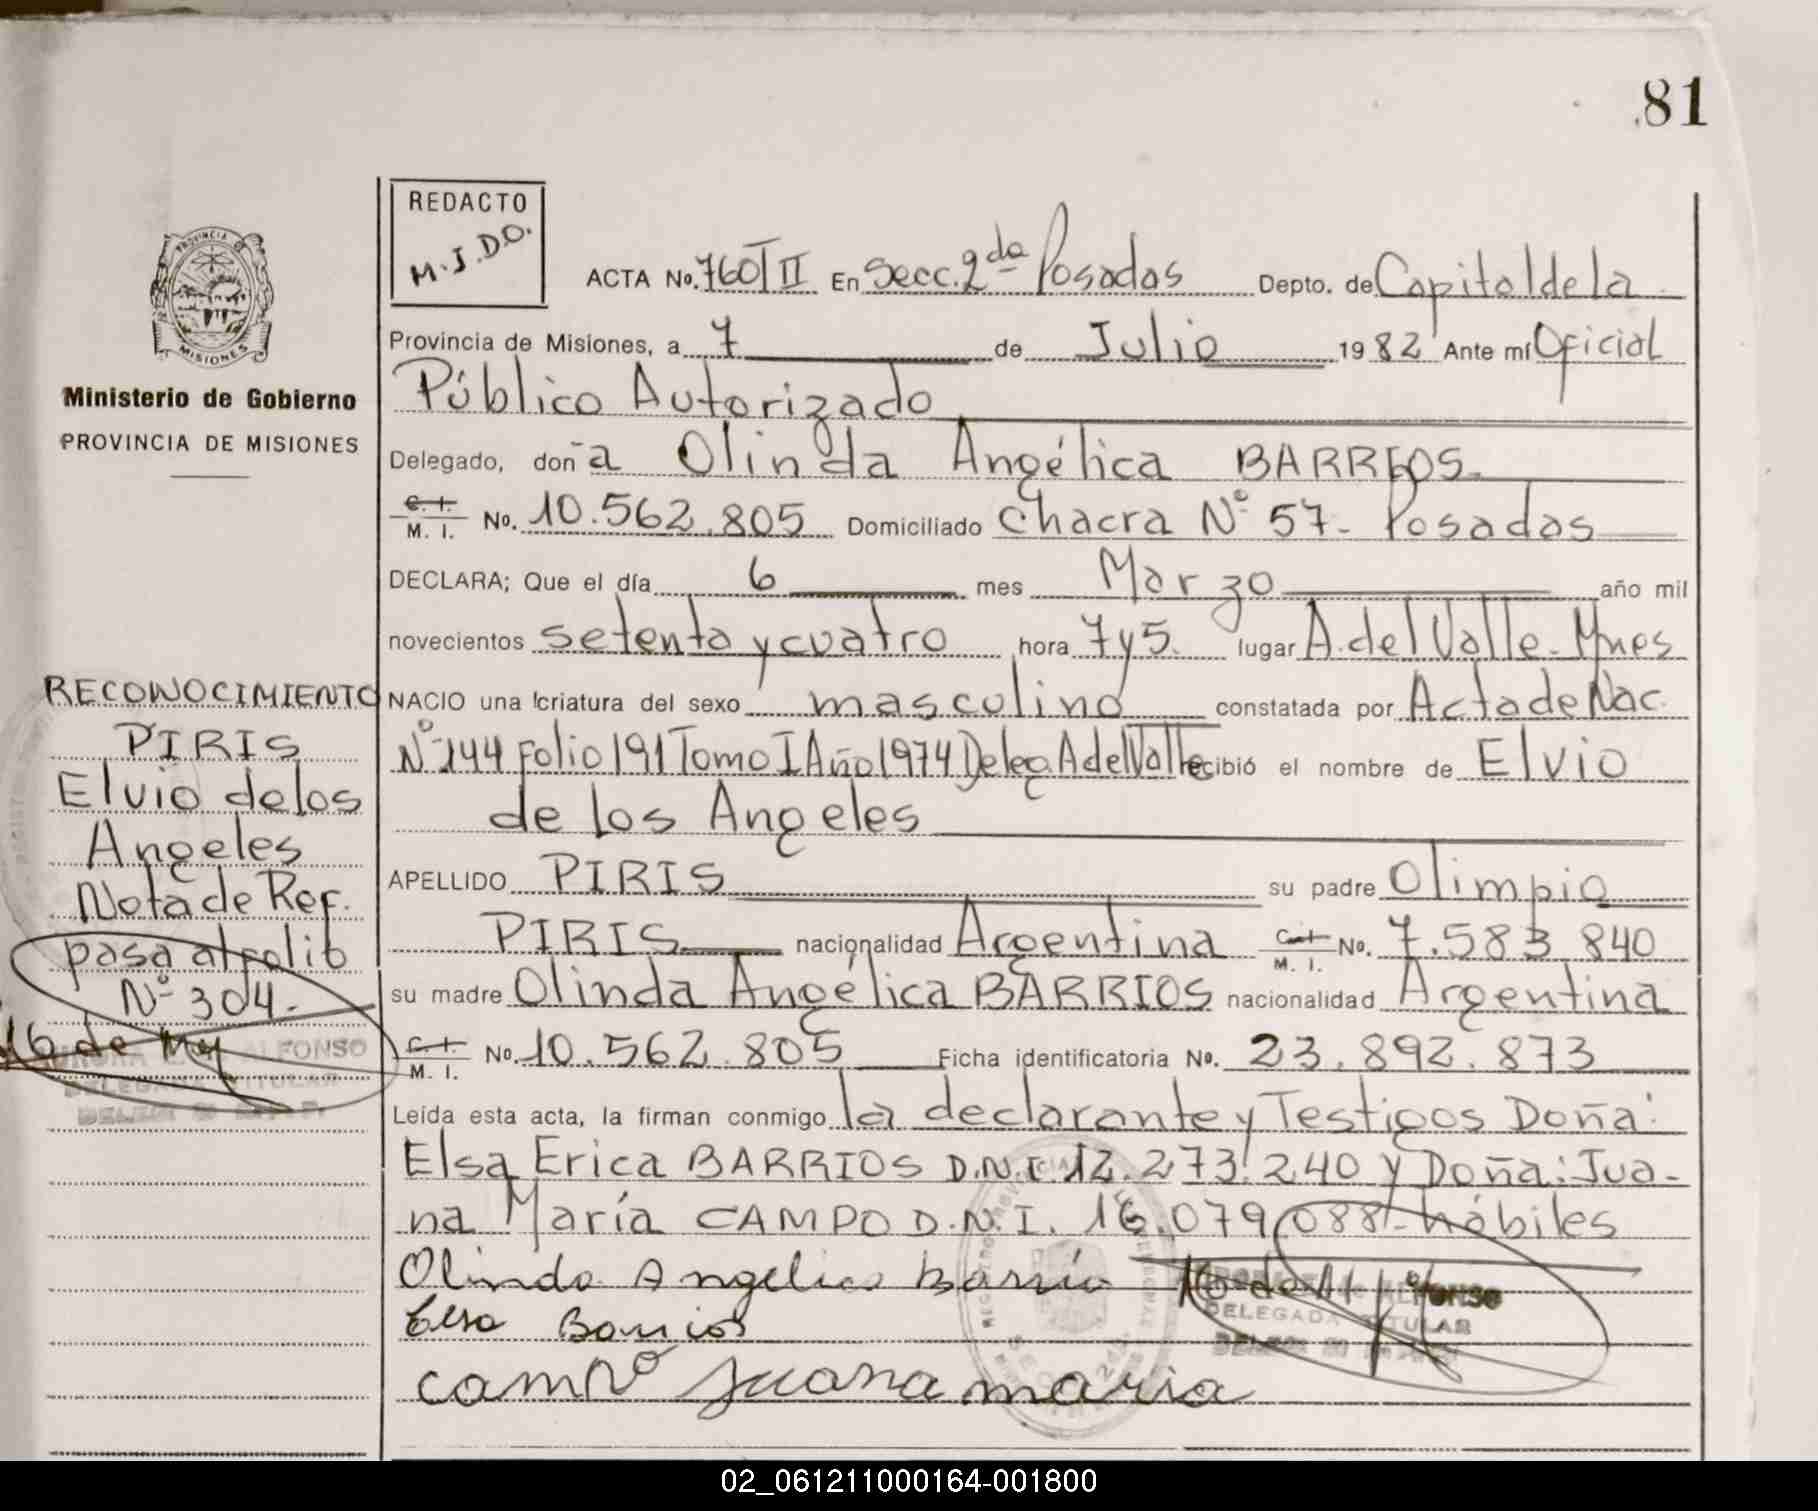 81
REDACTO
M.J.D.O.
ACTA No. 760/II En Secc. 2da Posadas Depto. de Capital de la
Provincia de Misiones, a 7 de Julio 1982 Ante mí Oficial
Público Autorizado
Delegado, doña Olinda Angélica BARRIOS.
C. I.
M. I. No. 10.562.805 Domiciliado Chacra Nº 57- Posadas
DECLARA; Que el día 6 mes Marzo año mil
novecientos setenta y cuatro hora 7 y 5. lugar A. del Valle. Mnes
NACIO una criatura del sexo masculino constatada por Acta de Nac.
Nº 144 Folio 191 Tomo I Año 1974 Deleg. A del Valle cibió el nombre de Elvio
de los Angeles
APELLIDO PIRIS su padre Olimpio
PIRIS nacionalidad Argentina C. I. M. I. No. 7.583.840
su madre Olinda Angélica BARRIOS nacionalidad Argentina
C. I.
M. I. No. 10.562.805 Ficha identificatoria No. 23.892.873
Leída esta acta, la firman conmigo la declarante y Testigos Doña:
Elsa Erica BARRIOS D.N.I. 12.273.240 y Doña: Jua-
na María CAMPO D.N.I. 16.079.088- hábiles
Olinda Angelica Barrio
Elsa Barrios
Campo Juana maria
ALFONSO
DELEGADA TITULAR
PROVINCIA DE
MISIONES
Ministerio de Gobierno
PROVINCIA DE MISIONES
RECONOCIMIENTO
PIRIS
Elvio de los
Angeles
Nota de Ref.
pasa al folio
Nº 304.-
ALFONSO
DELEGADA TITULAR
02_061211000164-001800